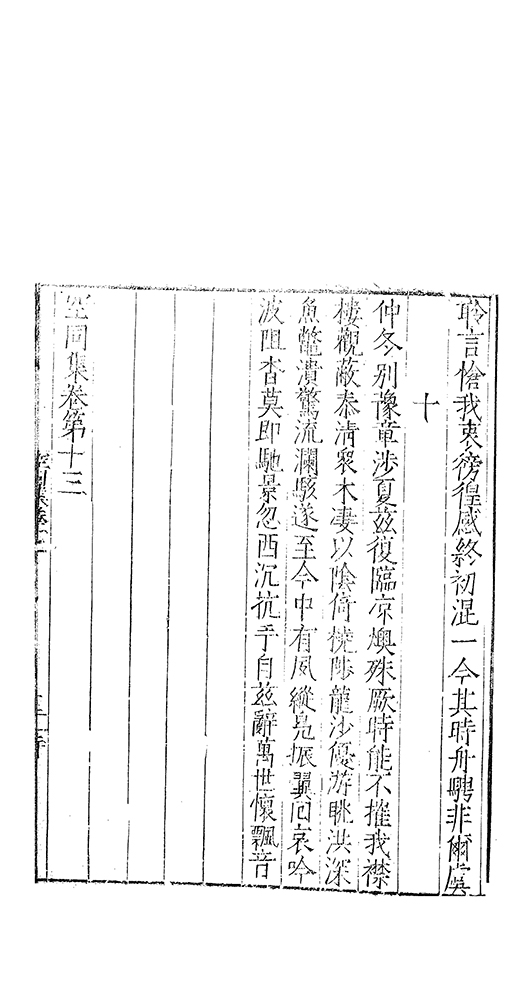 聆言愴我衷徬徨感終初混一今其時舟騁非爾虞
十
仲冬別豫章涉夏茲復臨凉燠殊厥時能不摧我襟
樓觀蔽泰清衆木凄以陰倚橈陟龍沙優游眺洪深
魚鼈潰驚流瀾駭遂至今中有凤縱鳧振翼囘哀吟
波阻杳莫即馳景忽西沉抗手自茲辭萬世懷飄音
空同集卷第十三
空同集卷十